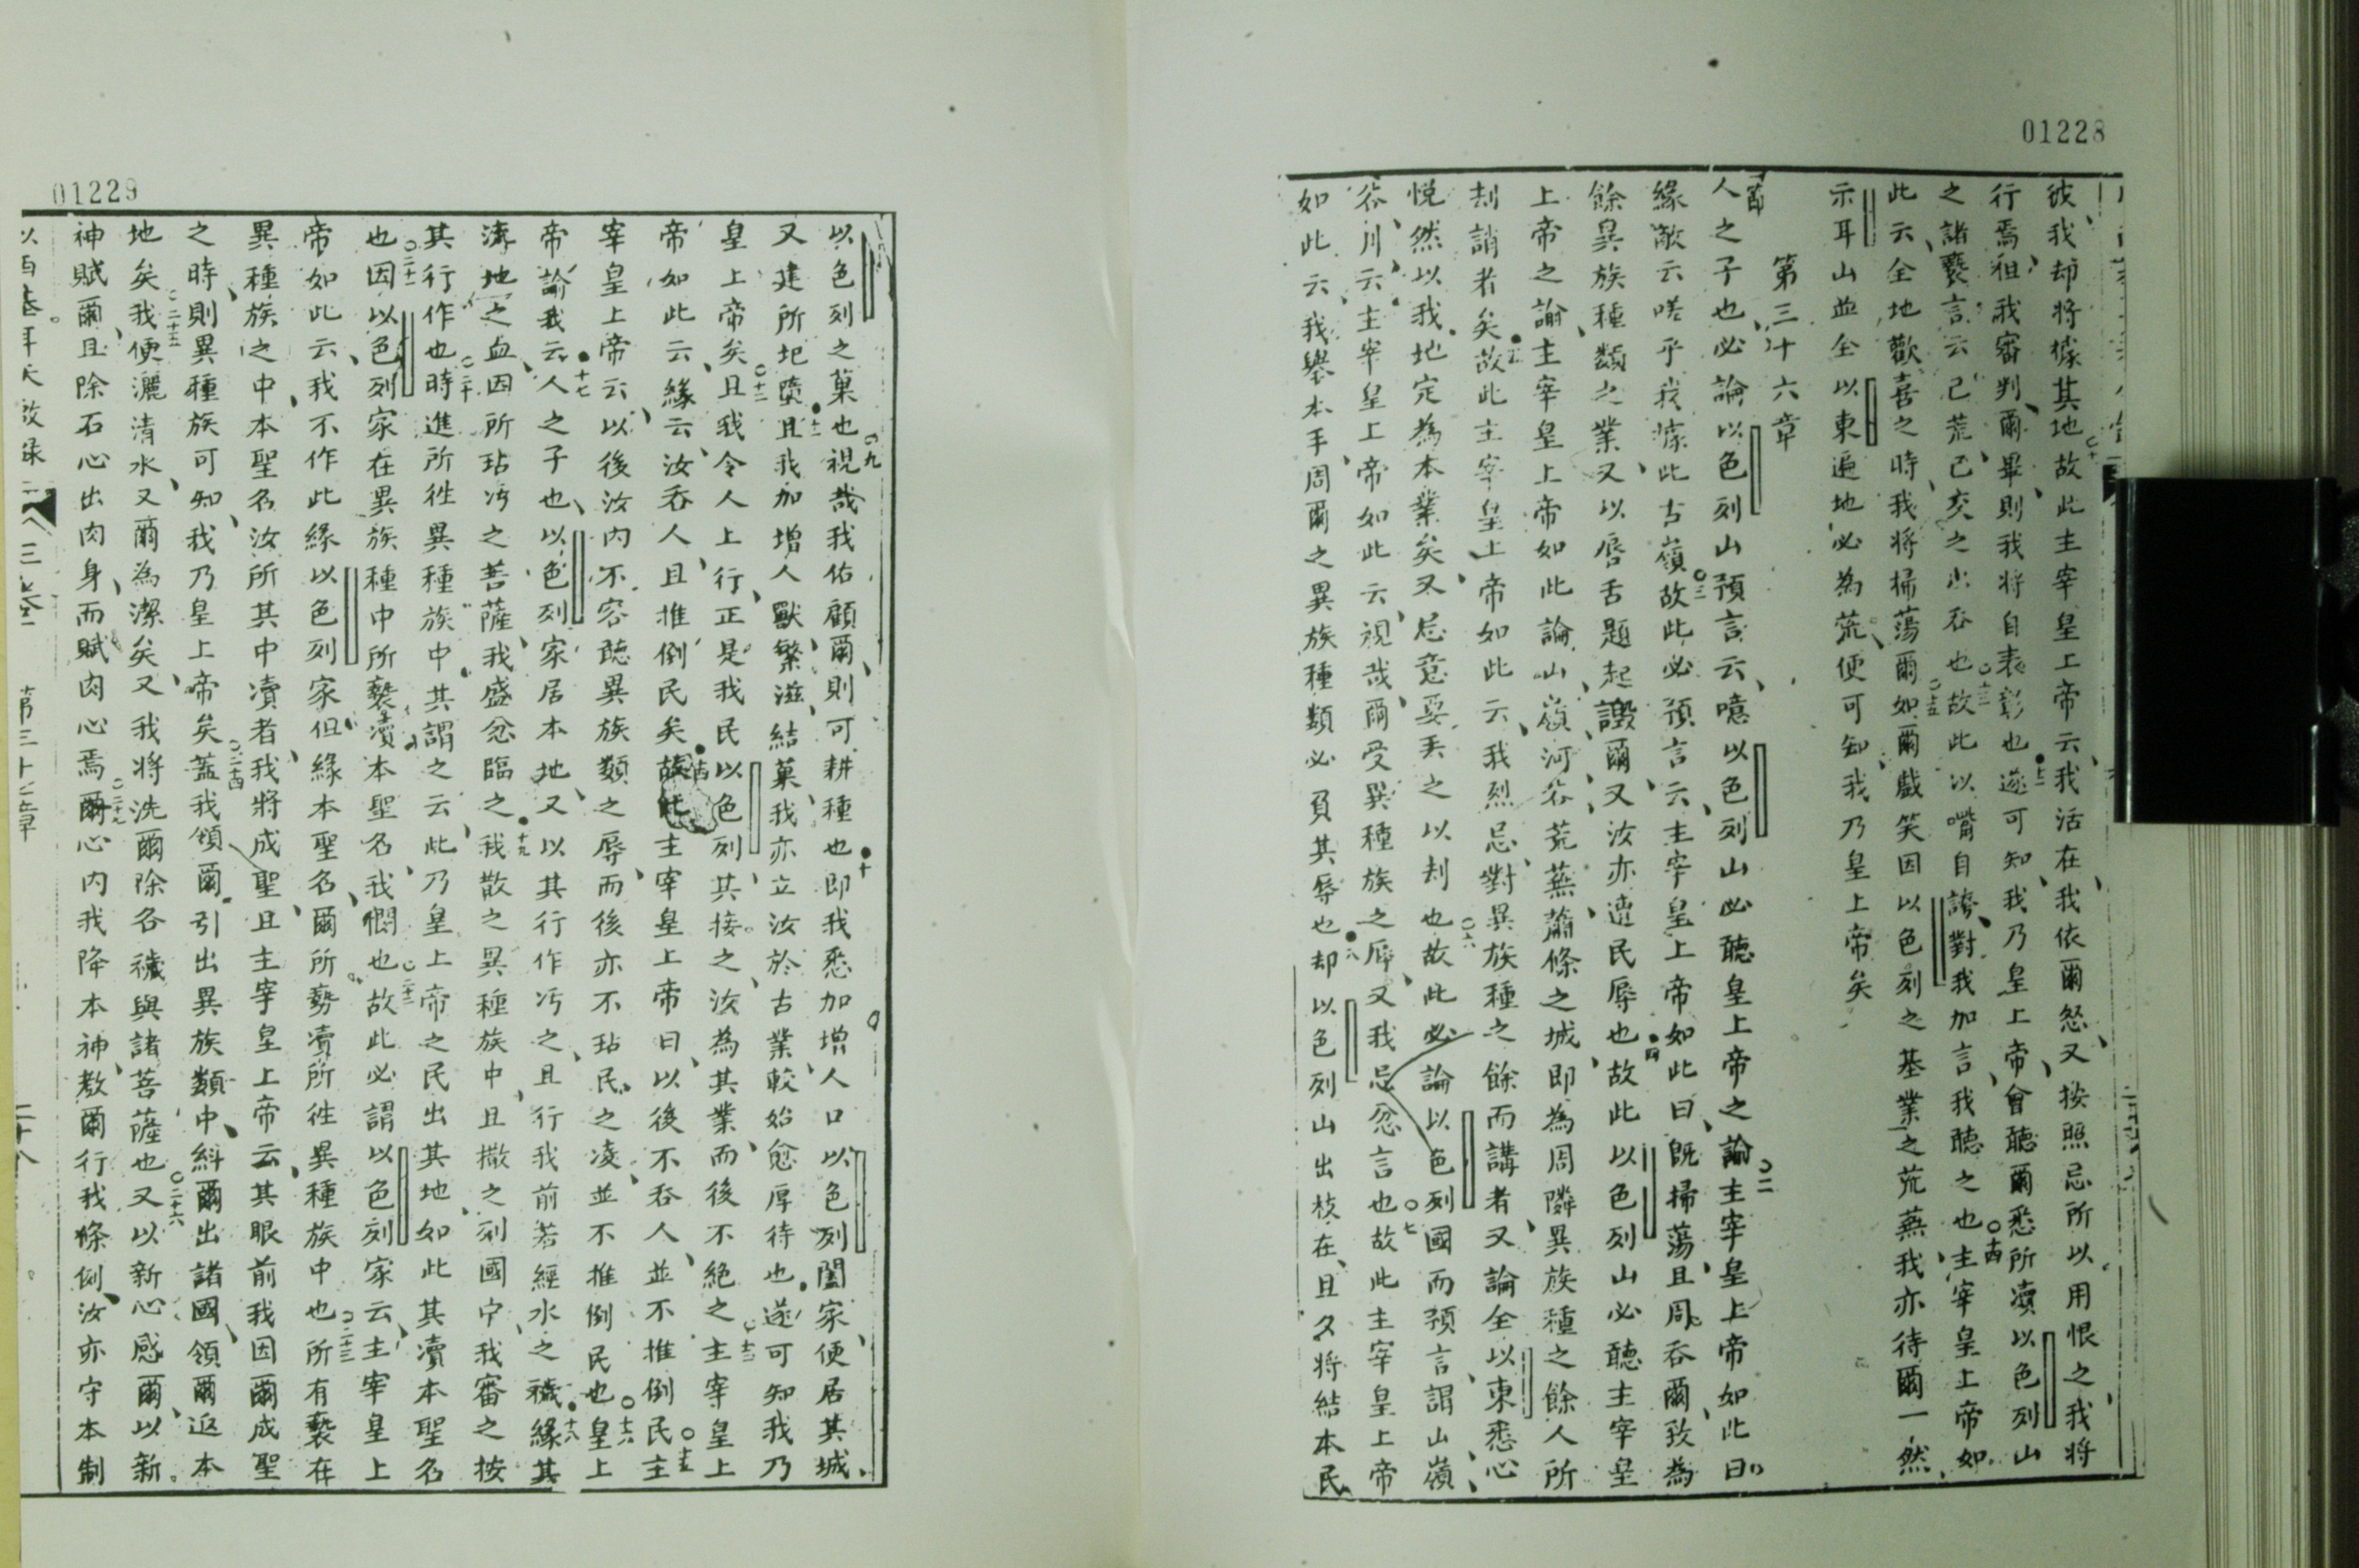 01228
彼我却將據其地故此主宰皇上帝云我活在我依爾怒又按照忌所以用恨之我將
行焉租我審判爾畢則我將自表彰也遂可知我乃皇上帝會聽爾悉所瀆以色列山
之諸褻言云己荒己交之出吞也故此以嘴自誇對我加言我聽之也主宰皇上帝如
此云全地歡喜之時我將掃蕩爾如爾戲笑因以色列之基業之荒蕪我亦待爾一然
示耳山並全以東遍地必為荒便可知我乃皇上帝矣
第三十六章
人之子也必論以色列山預言云噫以色列山必聽皇上帝之諭主宰皇上帝如此曰
緣敵云嗟乎我據此古嶺故此必預言云主宰皇上帝如此曰既掃蕩且周吞爾致為
餘異族種類之業又以唇舌題起譭爾又汝亦遭民辱也故此以色列山必聽主宰皇
上帝之諭主宰皇上帝如此論山嶺河谷荒蕪蕭條之城即為周隣異族種之餘人所
刦誚者矣故此主宰皇上帝如此云我烈忌對異族種之餘而講者又論全以東悉心
悅然以我地定為本業矣又忌意要丟之以刦也故此必論以色列國而預言謂山嶺
谷川云主宰皇上帝如此云視哉爾受異種族之辱又我忌忿言也故此主宰皇上帝
如此云我舉本手周爾之異族種類必負其辱也却以色列山出枝在且久將結本民
01229
以色列之菓也視哉我佑顧爾則可耕種也即我悉加增人口以色列闔家便居其城
又建所圯墮且我加增人獸繁滋結菓我亦立汝於古業較始愈厚待也遂可知我乃
皇上帝矣且我令人上行正是我民以色列其接之汝為其業而後不絕之主宰皇上
帝如此云緣云汝吞人且推倒民矣故此主宰皇上帝曰以後不吞人並不推倒民主
宰皇上帝云以後汝內不容聽異族類之辱而後亦不玷民之凌並不推倒民也皇上
帝諭我云人之子也以色列家居本地又以其行作汚之且行我前若經水之穢緣其
濤地之血因所玷汚之菩薩我盛忿臨之我散之異種族中且撒之列國中我審之按
其行作也時進所徃異種族中其謂之云此乃皇上帝之民出其地如此其瀆本聖名
也因以色列家在異族種中所褻瀆本聖名我憫也故此必謂以色列家云主宰皇上
帝如此云我不作此緣以色列家但緣本聖名爾所褻瀆所徃異種族中也所有褻在
異種族之中本聖名汝所其中瀆者我將成聖且主宰皇上帝云其眼前我因爾成聖
之時則異種族可知我乃皇上帝矣蓋我領爾引出異族類中糾爾出諸國領爾返本
地矣我便灑清水又爾為潔矣又我將洗爾除各穢與諸菩薩也又以新心感爾以新
神賦爾且除石心出肉身而賦肉心焉爾心內我降本神教爾行我條例汝亦守本制